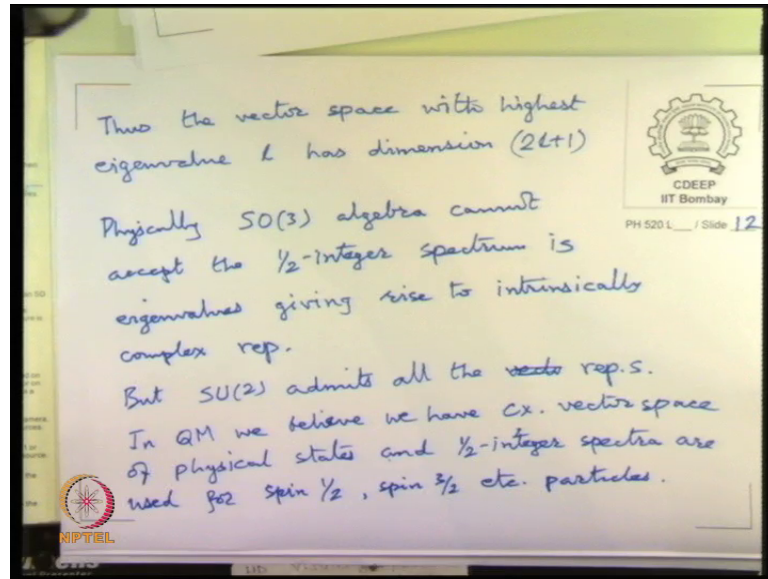 Thus the vector space with highest
eigenvalue l has dimension (2l+1)
Physically SO(3) algebra cannot
accept the 1/2-integer spectrum is
eigenvalues giving rise to intrinsically
complex rep.
But SU(2) admits all the rep.s.
In QM we believe we have cx. vector space
of physical states and 1/2-integer spectra are
used for spin 1/2, spin 3/2 etc. particles.
CDEEP
IIT Bombay
PH 520 L___ / Slide 12
NPTEL